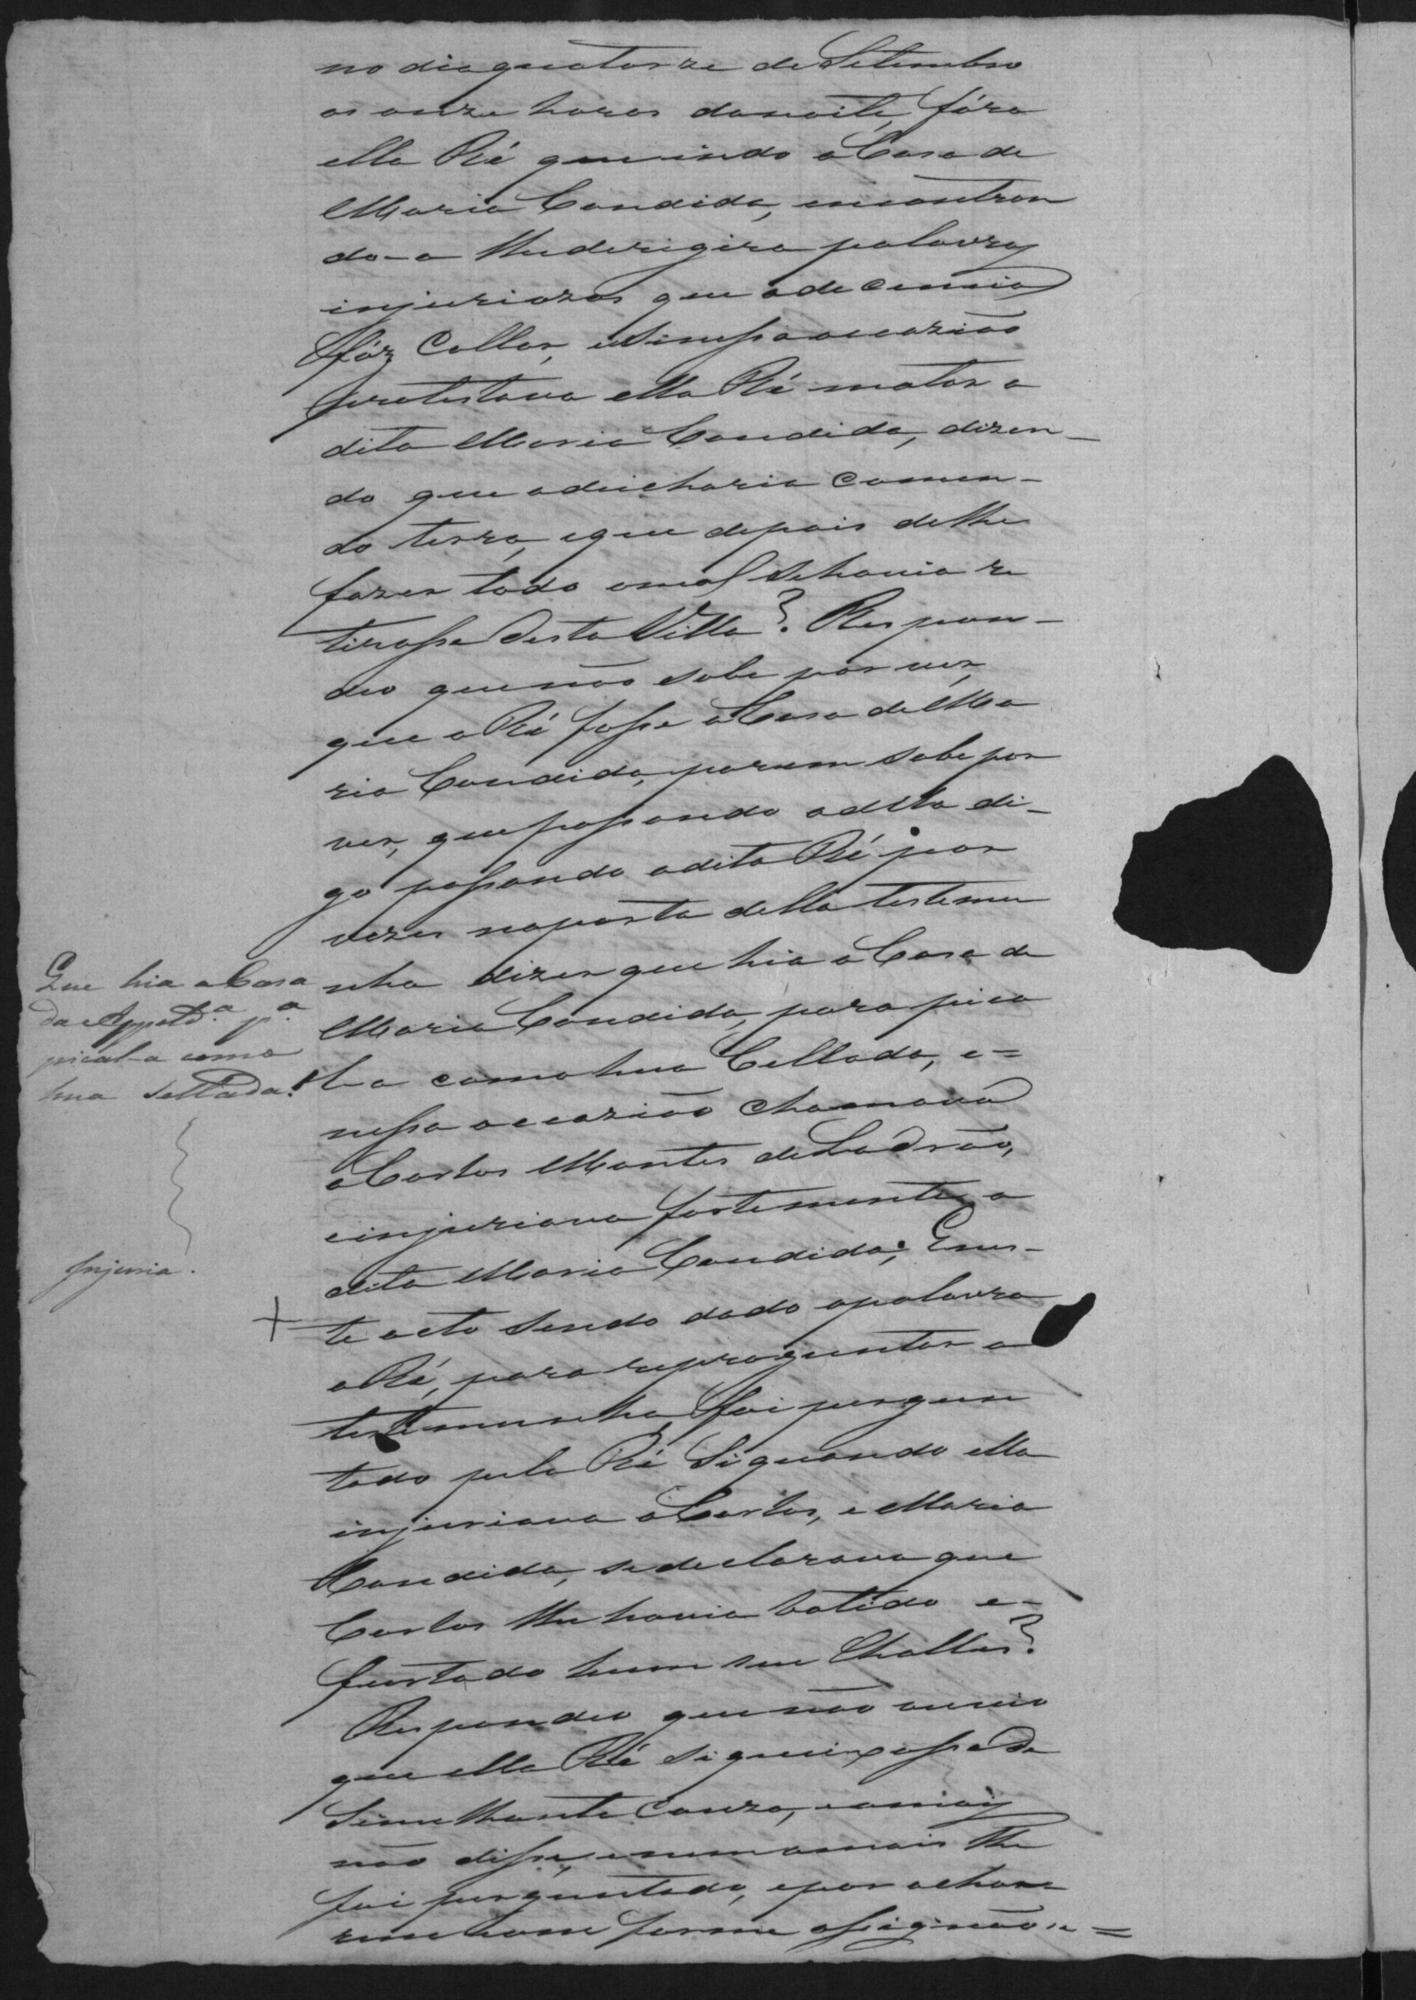 no dia quatorze de Setembro
as onze horas danoite, fóra
ella Ré querindo a Casa de
Maria Candida, encontran
do-a lhe derigira palavras
injuriozas que a decencia
fáz Callar, e Sinessa occazião
protestava ella Ré matar a
dita Maria Candida, dizen-
do que adeicharia comen-
do terra, eque depois delhe
fazer todo omal Sehavia re
tirasse desta Villa? Respon-
deo quenão sabe por ver,
que a Ré fosse a Casa de Ma
ria Candida, porem sabe por
ver, que passando adita di-
go passando adita Ré por
vezes naporta della testemu
nha dizer que hia a Casa de
Maria Candida, para pica
l-a como hua Cellada, e=
nessa occazião chamava
a Carlos Montes de Ladrão,
einjuriava fortemente, a
dita Maria Candida; Enes-
te acto Sendo dado apalavra
a Ré, para reproguntar a
testemunha, foi pergun
tado pela Ré Si quando ella
injuriava a Carlos, e Maria
Candida, sedeclarava que
Carlos lhe havia batido e-
furtado hum seu Challes?
Respondeo quenão ouvio
que ella Ré Si queixasse de
Simelhante Couza, eamais
não disse, enemamais lhe
foi perguntado, epor achar
em conforme assignão e=
Que hia a Casa
da Appeld.ª p.ª
pical-a como
hua sellada.
Injuria.